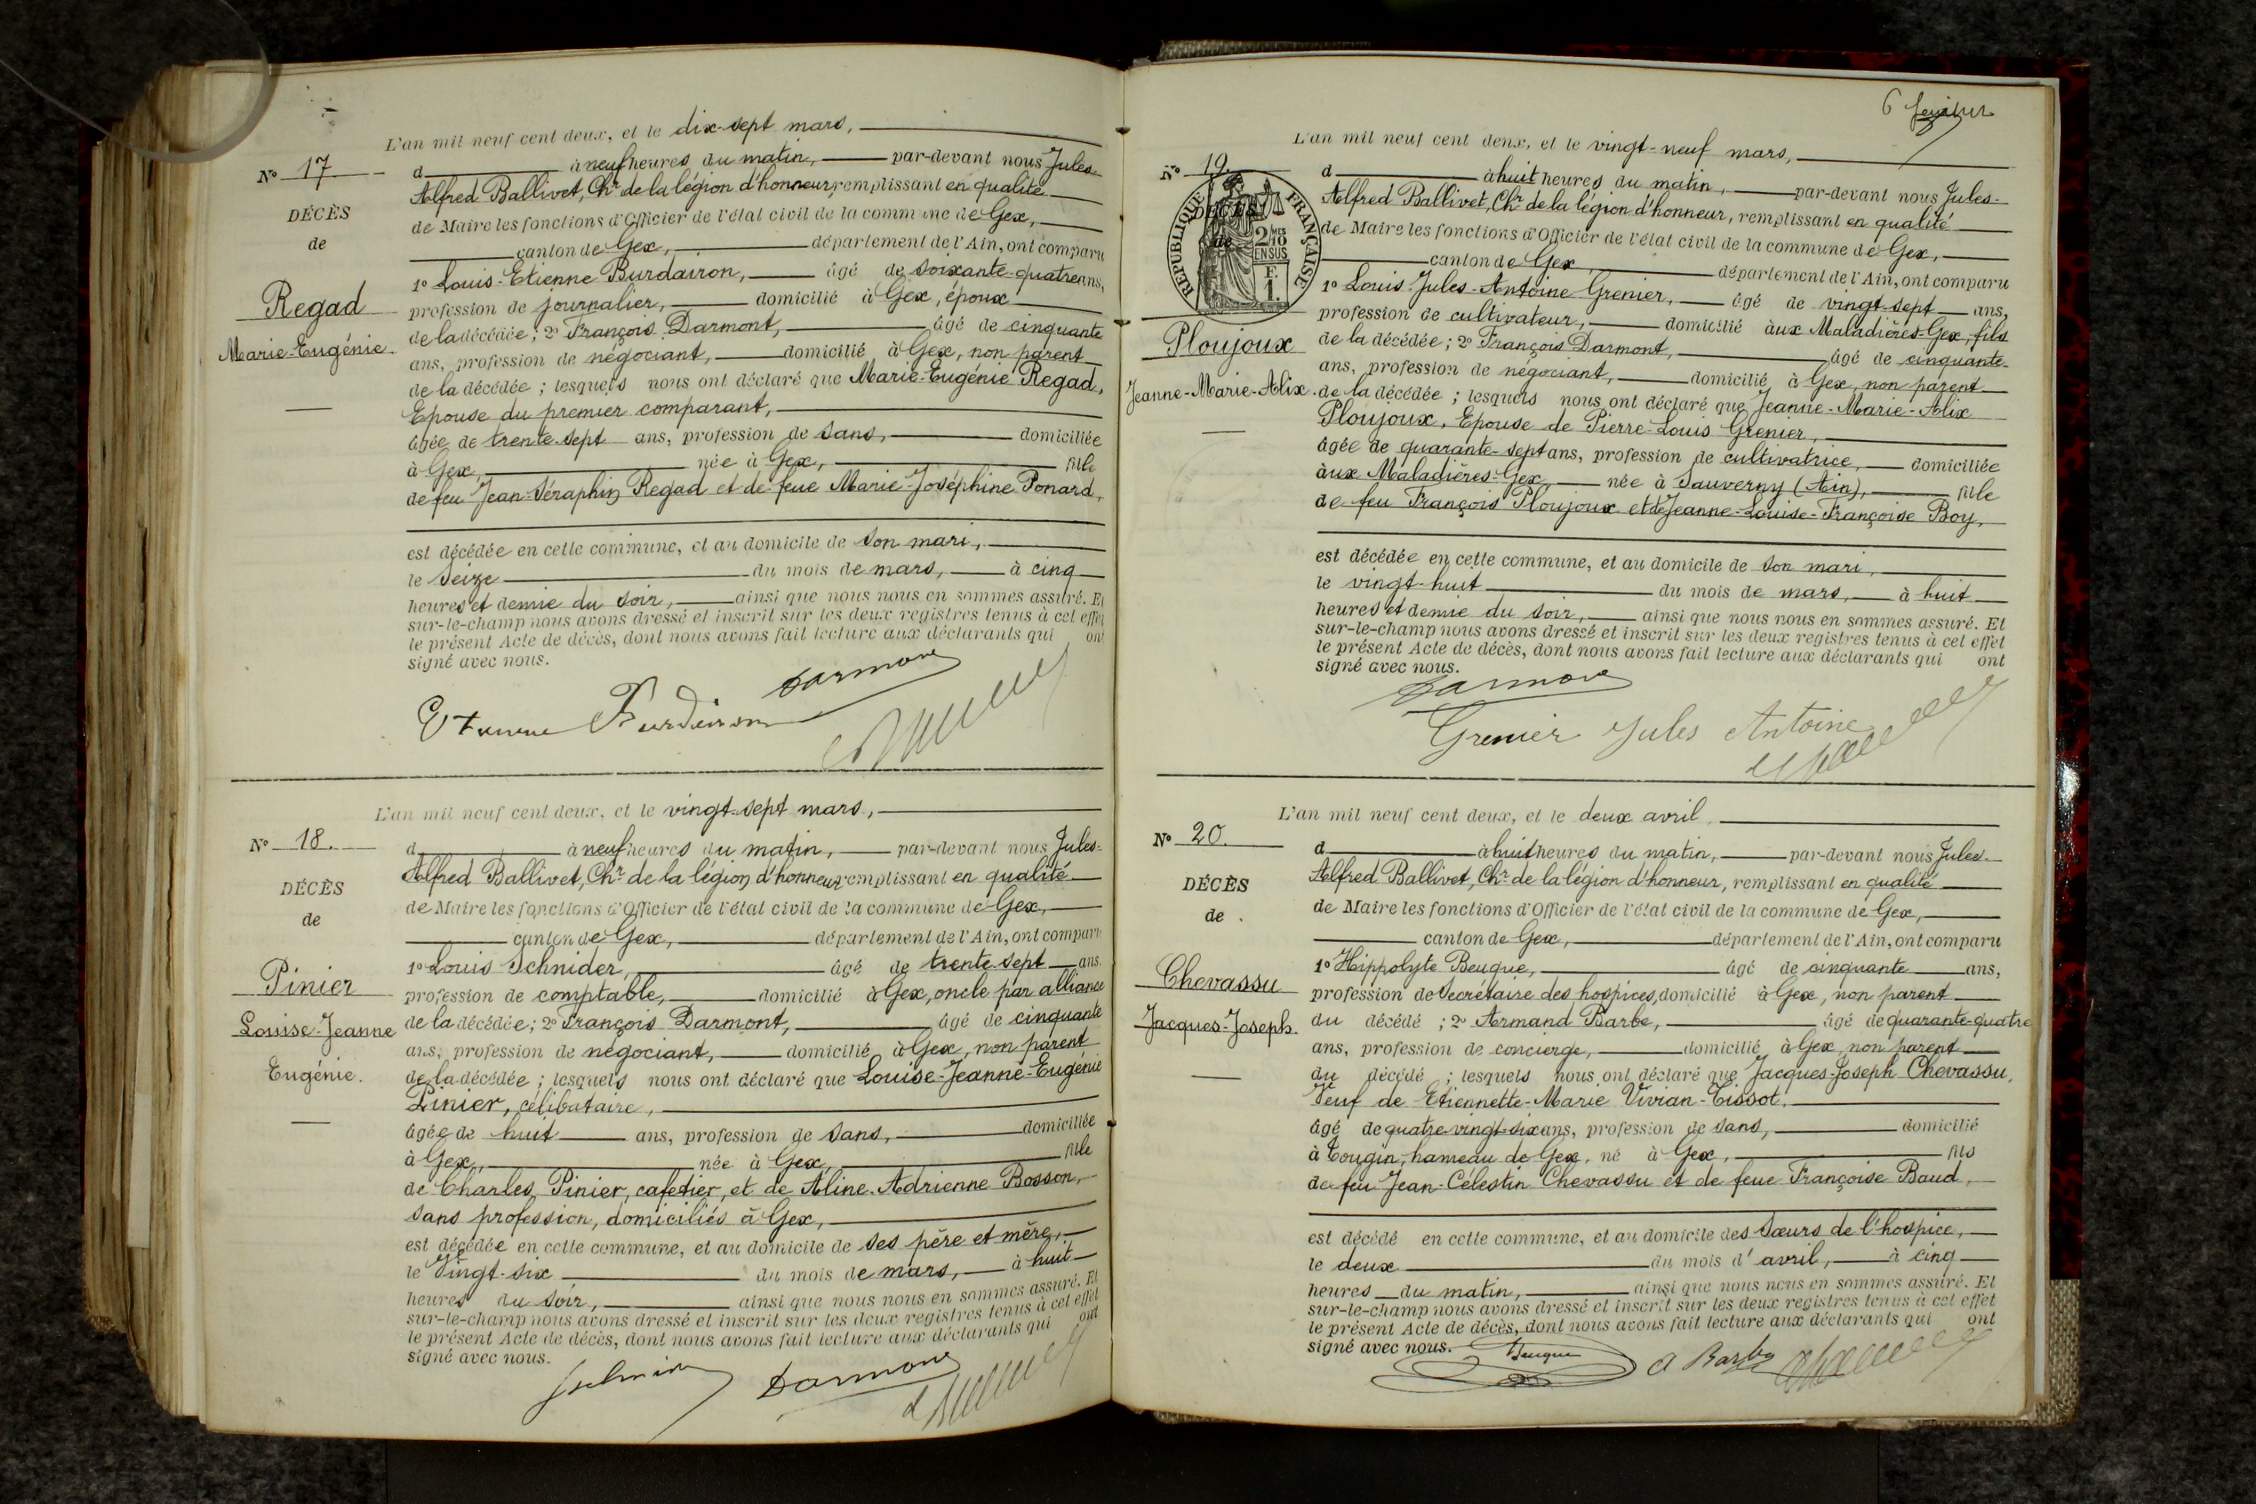 L'an mil neuf cent deux, et le dix-sept mars,
N° 17
d à neuf heures du matin, par-devant nous Jules-
Alfred Ballivet, Chr de la légion d'honneur, remplissant en qualité
DÉCÈS
de Maire les fonctions d'Officier de l'état civil de la commune de Gex,
de
canton de Gex, département de l'Ain, ont comparu
1° Louis-Etienne Burdairon, âgé de soixante-quatre ans,
Regad
profession de journalier, domicilié à Gex, époux
de la décédée; 2° François Darmont, âgé de cinquante
Marie-Eugénie.
ans, profession de négociant, domicilié à Gex, non parent
de la décédée; lesquels nous ont déclaré que Marie-Eugénie Regad,
Epouse du premier comparant,
âgée de trente-sept ans, profession de sans, domiciliée
à Gex, née à Gex, fille
de feu Jean-Séraphin Regad et de feue Marie-Joséphine Ponard,
est décédée en cette commune, et au domicile de son mari,
le seize du mois de mars, à cinq
heures et demie du soir, ainsi que nous nous en sommes assuré. Et
sur-le-champ nous avons dressé et inscrit sur les deux registres tenus à cet effet
le présent Acte de décès, dont nous avons fait lecture aux déclarants qui ont
signé avec nous.
Darmont
Etienne Burdairon
L'an mil neuf cent deux, et le vingt-sept mars,
N° 18.
d à neuf heures du matin, par-devant nous Jules-
Alfred Ballivet, Chr de la légion d'honneur, remplissant en qualité
DÉCÈS
de Maire les fonctions d'Officier de l'état civil de la commune de Gex,
de
canton de Gex, département de l'Ain, ont comparu
1° Louis Schnider, âgé de trente-sept ans
Pinier
profession de comptable, domicilié à Gex, oncle par alliance
de la décédée; 2° François Darmont, âgé de cinquante
Louise-Jeanne
ans, profession de négociant, domicilié à Gex, non parent
Eugénie.
de la décédée; lesquels nous ont déclaré que Louise-Jeanne-Eugénie
Pinier, célibataire,
âgée de huit ans, profession de sans, domiciliée
à Gex, née à Gex, fille
de Charles Pinier, cafetier, et de Aline-Adrienne Bosson,
sans profession, domiciliés à Gex,
est décédée en cette commune, et au domicile de ses père et mère,
le Vingt-six du mois de mars, à huit
heures du soir, ainsi que nous nous en sommes assuré. Et
sur-le-champ nous avons dressé et inscrit sur les deux registres tenus à cet effet
le présent Acte de décès, dont nous avons fait lecture aux déclarants qui ont
signé avec nous.
Schnider Darmont
L'an mil neuf cent deux, et le vingt-neuf mars,
N° 19.
d à huit heures du matin, par-devant nous Jules-
Alfred Ballivet, Chr de la légion d'honneur, remplissant en qualité
DÉCÈS
de Maire les fonctions d'Officier de l'état civil de la commune de Gex,
de
RÉPUBLIQUE FRANÇAISE
2/10MES
EN SUS
F.
1.
canton de Gex, département de l'Ain, ont comparu
1° Louis Jules-Antoine Grenier, âgé de vingt-sept ans,
profession de cultivateur, domicilié aux Maladières-Gex, fils
Ploujoux
de la décédée; 2° François Darmont, âgé de cinquante-
ans, profession de négociant, domicilié à Gex, non parent
Jeanne-Marie-Alix.
de la décédée; lesquels nous ont déclaré que Jeanne-Marie-Alix
Ploujoux, Epouse de Pierre-Louis Grenier,
âgée de quarante-sept ans, profession de cultivatrice, domiciliée
aux Maladières-Gex, née à Sauverny (Ain), fille
de feu François Ploujoux et de Jeanne-Louise-Françoise Boy,
est décédée en cette commune, et au domicile de son mari,
le vingt-huit du mois de mars, à huit
heures et demie du soir, ainsi que nous nous en sommes assuré. Et
sur-le-champ nous avons dressé et inscrit sur les deux registres tenus à cet effet
le présent Acte de décès, dont nous avons fait lecture aux déclarants qui ont
signé avec nous.
Darmont
Grenier Jules Antoine
L'an mil neuf cent deux, et le deux avril
N° 20.
d à huit heures du matin, par-devant nous Jules-
Alfred Ballivet, Chr de la légion d'honneur, remplissant en qualité
DÉCÈS
de Maire les fonctions d'Officier de l'état civil de la commune de Gex,
de
canton de Gex, département de l'Ain, ont comparu
1° Hippolyte Beuque, âgé de cinquante ans,
Chevassu
profession de secrétaire des hospices, domicilié à Gex, non parent
Jacques-Joseph.
du décédé; 2° Armand Barbe, âgé de quarante-quatre
ans, profession de concierge, domicilié à Gex, non parent
du décédé; lesquels nous ont déclaré que Jacques-Joseph Chevassu,
Veuf de Etiennette-Marie Vivian-Tissot.
âgé de quatre-vingt-six ans, profession de sans, domicilié
à Tougin, hameau de Gex, né à Gex, fils
de feu Jean-Célestin Chevassu et de feue Françoise Baud,
est décédé en cette commune, et au domicile des Sœurs de l'hospice,
le deux du mois d'avril, à cinq
heures du matin, ainsi que nous nous en sommes assuré. Et
sur-le-champ nous avons dressé et inscrit sur les deux registres tenus à cet effet
le présent Acte de décès, dont nous avons fait lecture aux déclarants qui ont
signé avec nous.
Beuque A Barbe